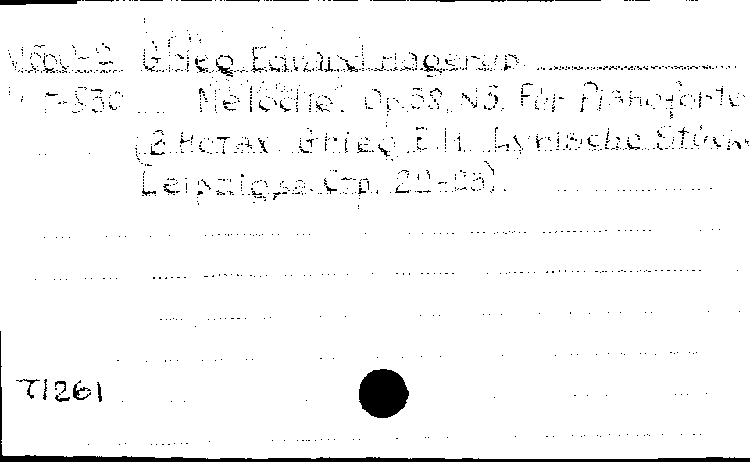 Grieg Edvard Hagerup
Г-530 Melodie. Op.38, N3. Für Pianoforte
(В нотах Grieg E.H. Lyrische Stück
Leipzig, s.a. Стр. 22-23).
П1261